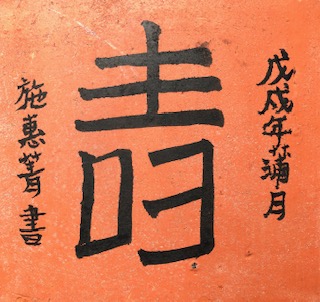 戊戌年蒲月
施惠菁書